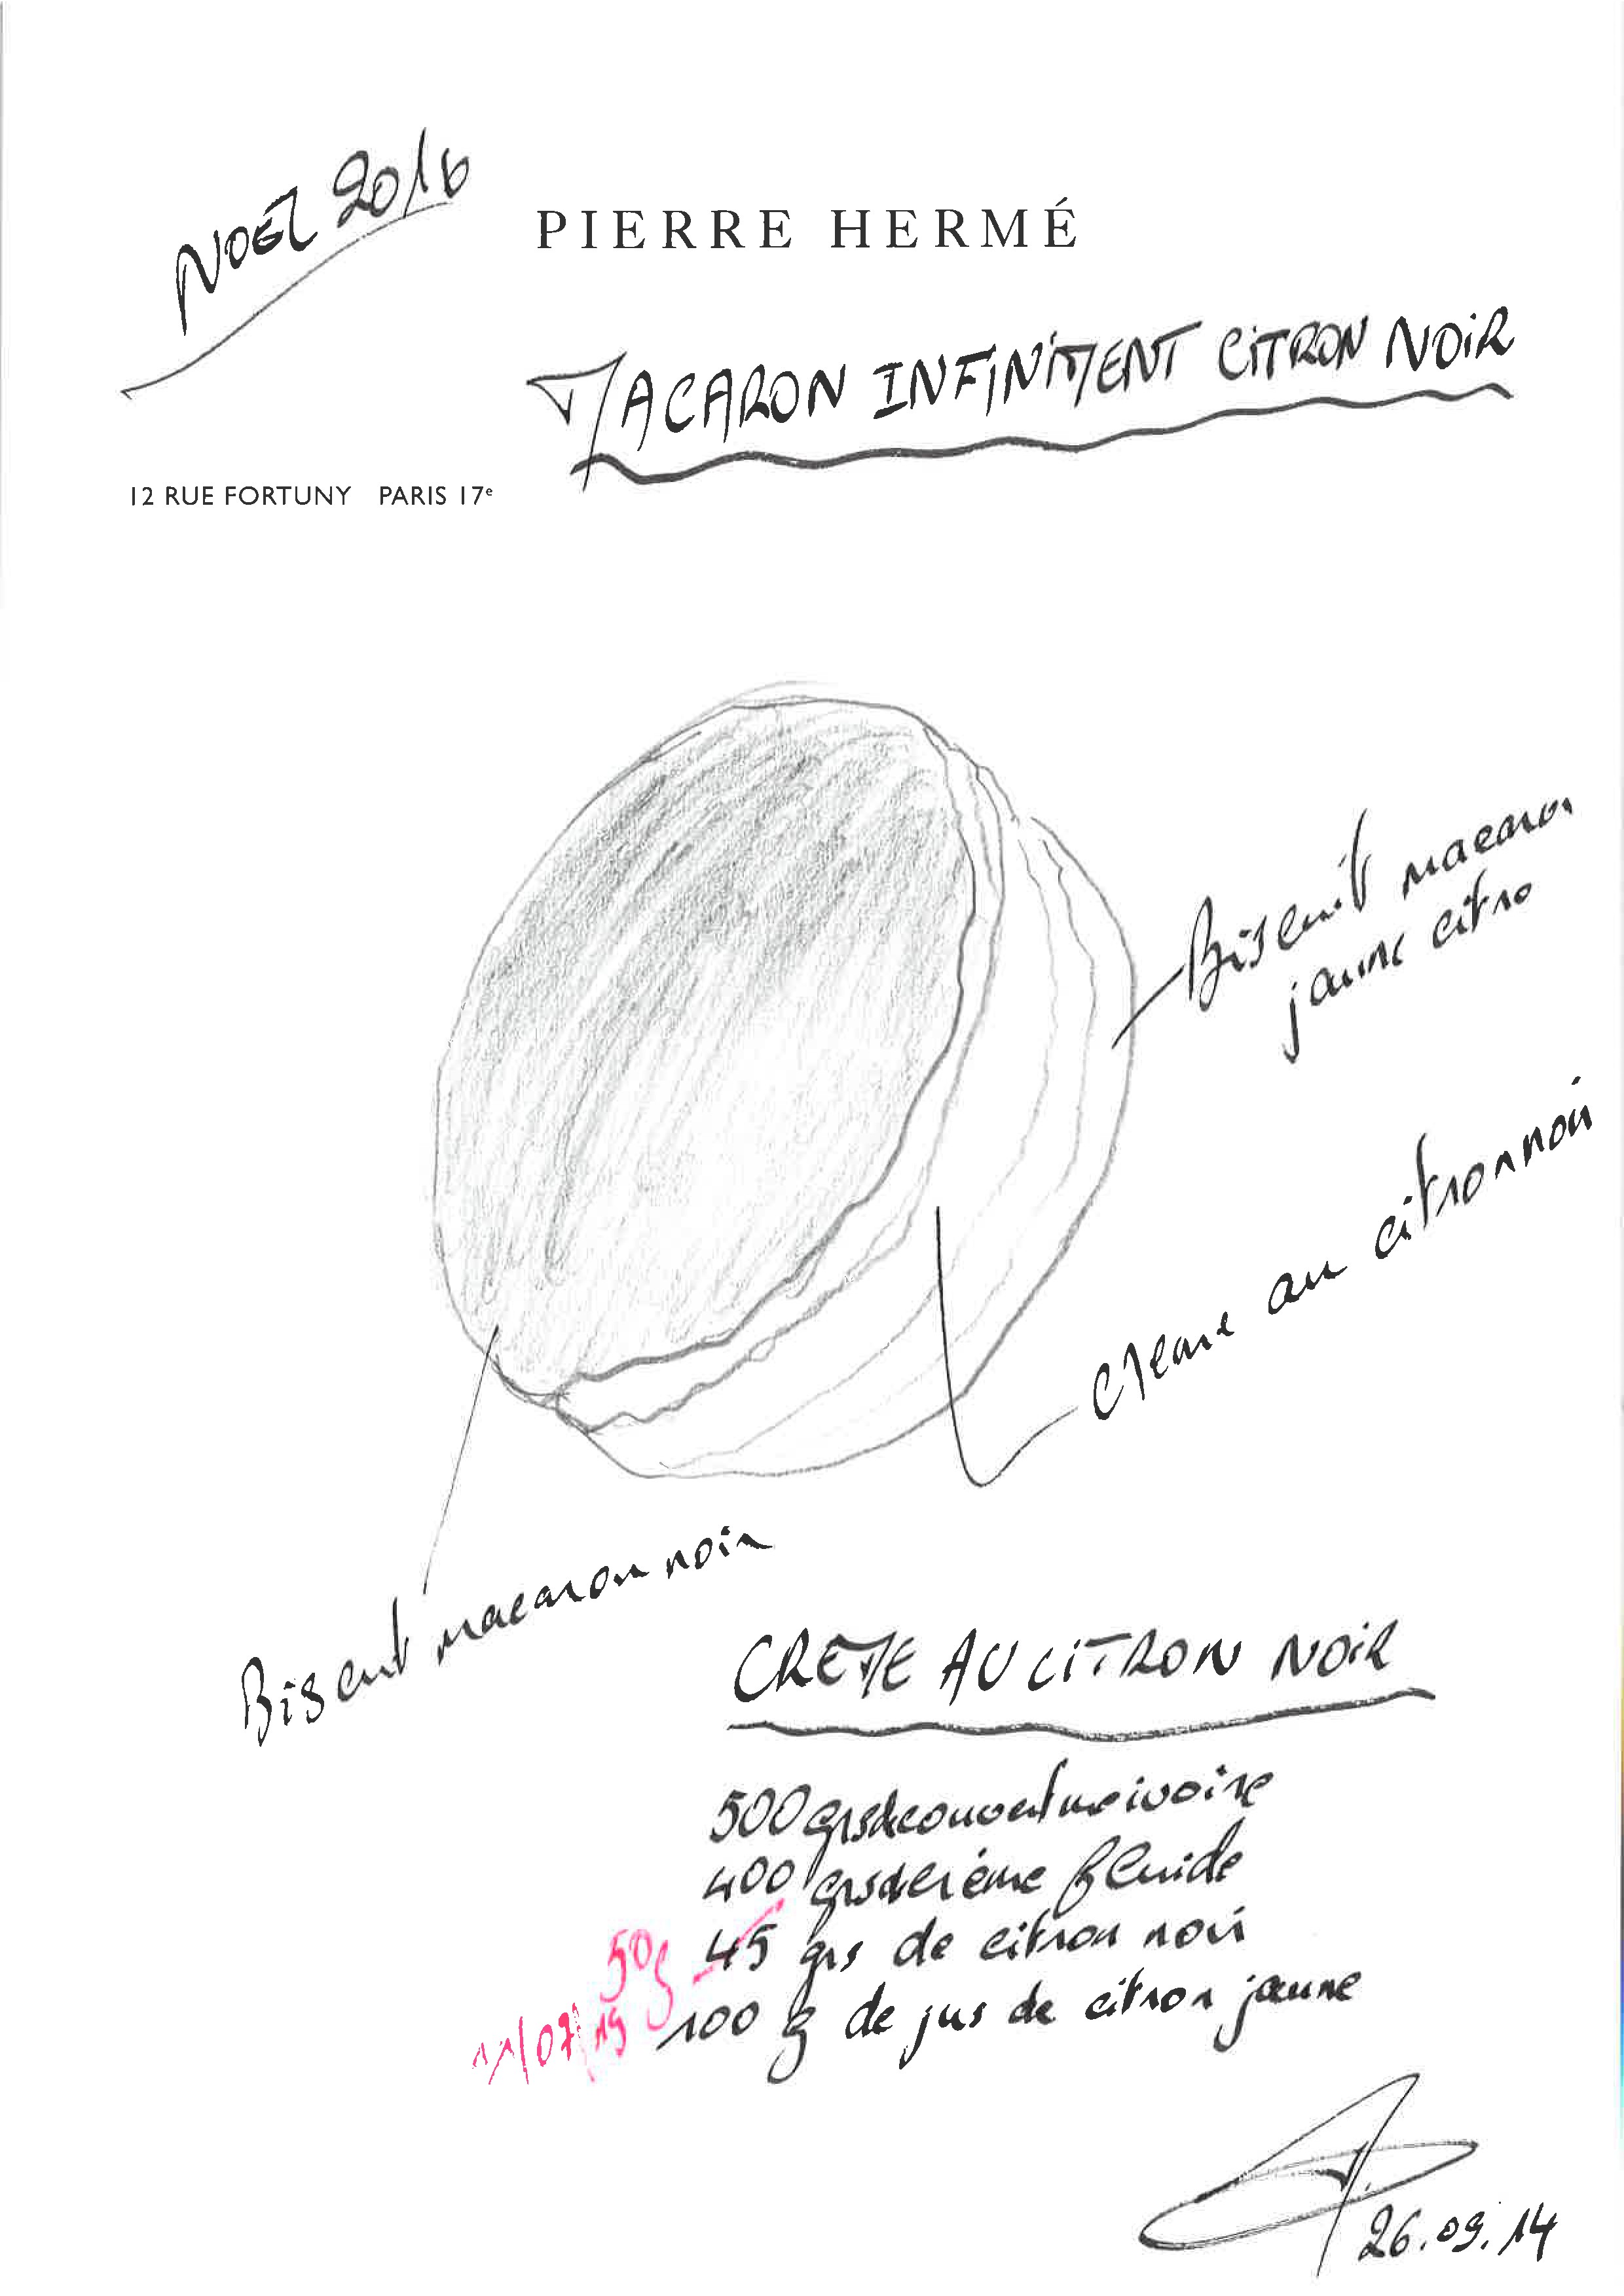 NOËL 2016
PIERRE HERMÉ
MACARON INFINIMENT CITRON NOIR
12 RUE FORTUNY PARIS 17e
Biscuit macaron
jaune citro
crème au citron noir
Biscuit macaron noir
CREME AU CITRON NOIR
500 grs de couverture ivoire
400 grs de crème fluide
50g 45 grs de citron noir
11/07/19 100 g de jus de citron jaune
26.09.14